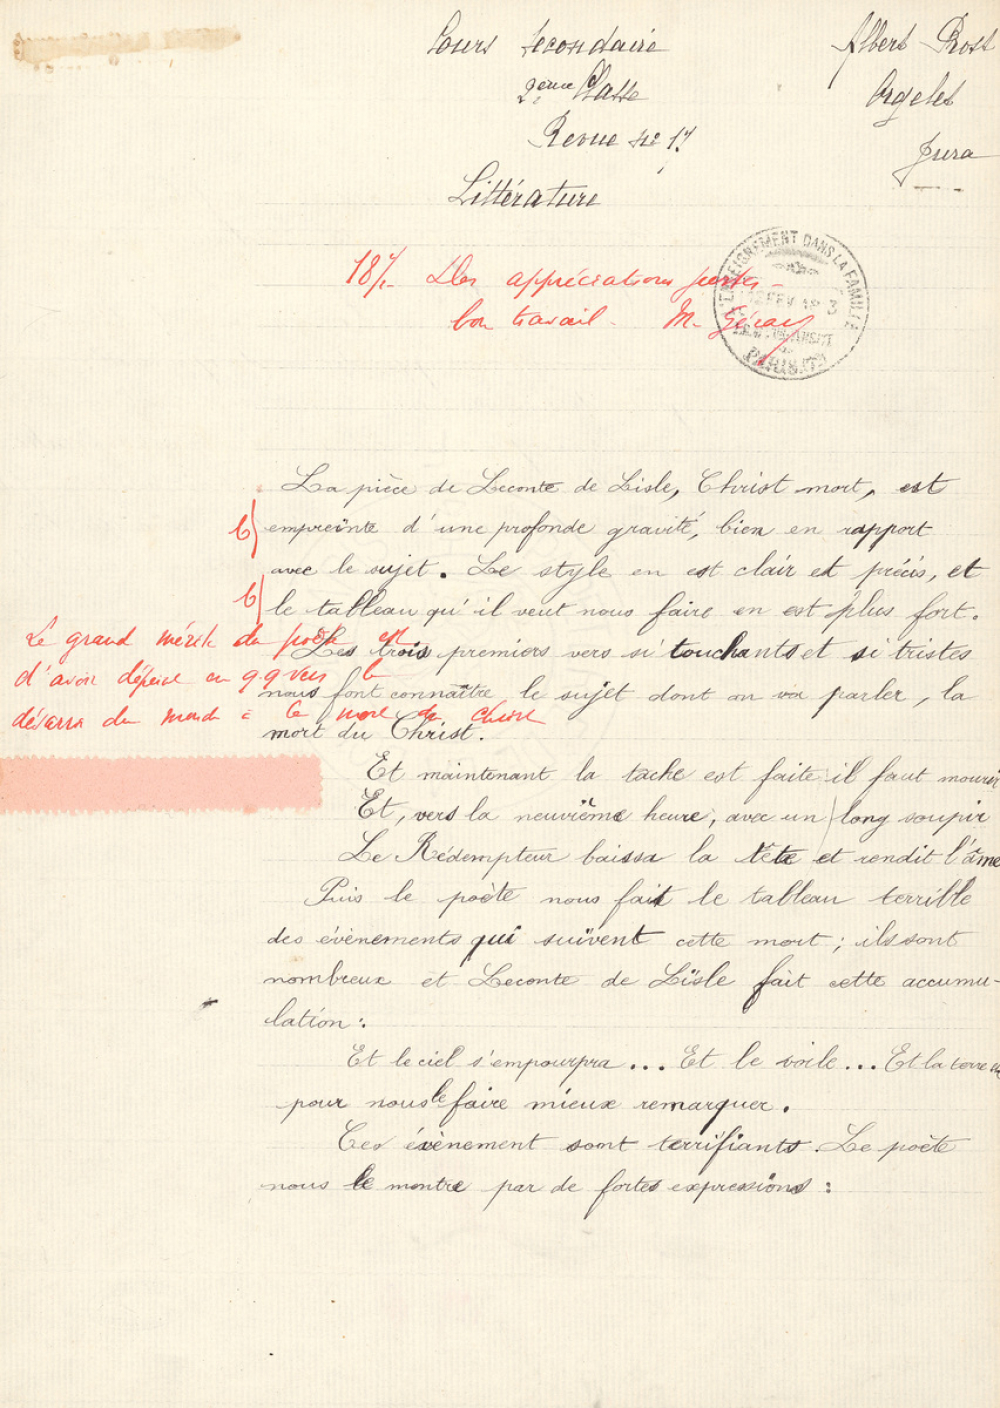 Cours Secondaire
2ème Classe
Revue nº 17
Albert Prost
Orgelet
Jura
Littérature
18/. Des appréciations justes -
bon travail. M. Géray
L'ENSEIGNEMENT DANS LA FAMILLE
PARIS
La pièce de Leconte de Lisle, Christ mort, est
b empreinte d'une profonde gravité, bien en rapport
avec le sujet. Le style en est clair et précis, et
b le tableau qu'il veut nous faire en est plus fort.
Le grand mérite du poète est
d'avoir dépeint en q.q vers le
désarroi du monde à la mort du Christ
Les trois premiers vers si touchants et si tristes
nous font connaître le sujet dont on va parler, la
mort du Christ.
Et maintenant la tâche est faite il faut mourir
Et, vers la neuvième heure, avec un long soupir
Le Rédempteur baissa la tête et rendit l'âme
Puis le poète nous fait le tableau terrible
des évènements qui suivent cette mort; ils sont
nombreux et Leconte de Lisle fait cette accumu-
lation:
Et le ciel s'empourpra... Et le voile... Et la terre
pour nous le faire mieux remarquer.
Ces évènement sont terrifiants. Le poète
nous le montre par de fortes expressions: